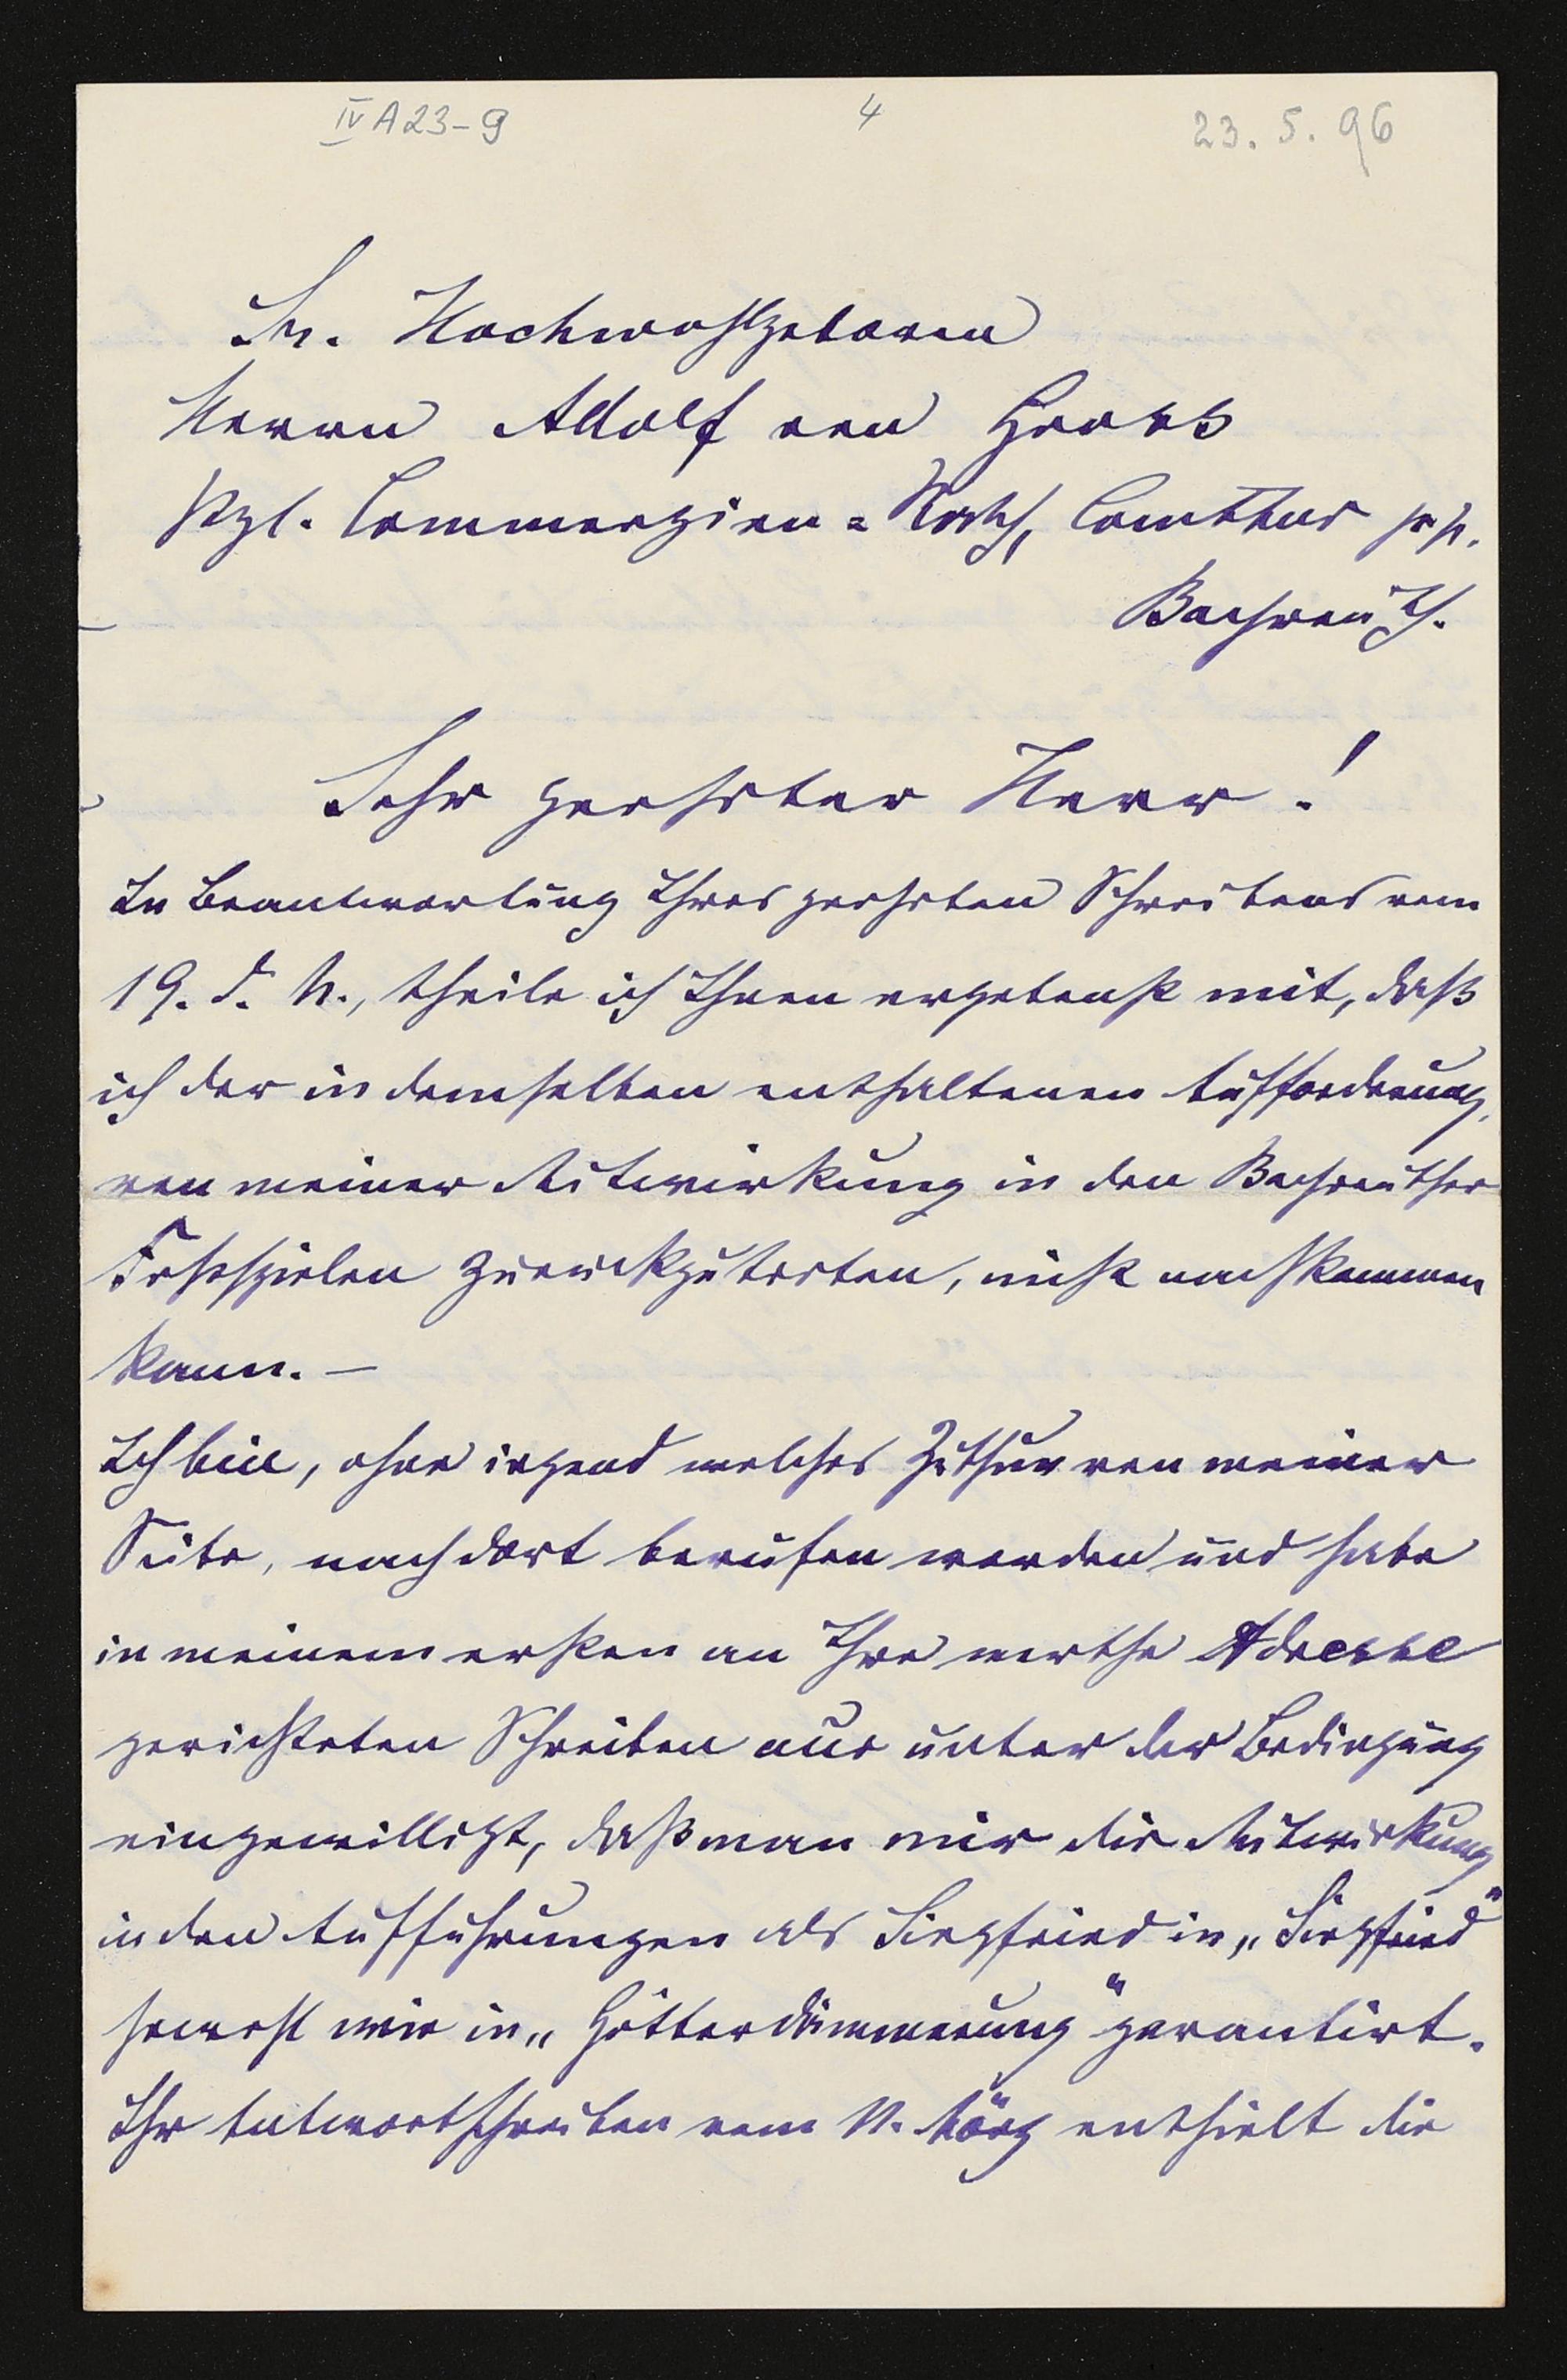 IV A 23-9 4 23. 5. 96
Sr. Hochwohlgeboren
Herrn Adolf von Gross
Kgl. Commerzien-Rath, Comthur pp.
Bayreuth.
Sehr geehrter Herr!
In Beantwortung Ihres geehrten Schreibens vom
19. d. M., theile ich Ihnen ergebenst mit, daß
ich der in demselben enthaltenen Aufforderung,
von meiner Mitwirkung in den Bayreuther
Festspielen zurückzutreten, nicht nachkommen
kann. —
Ich bin, ohne irgend welches Zuthun von meiner
Seite, nach dort berufen worden und habe
in meinem ersten an Ihre werthe Adresse
gerichteten Schreiben nur unter der Bedingung
eingewilligt, daß man mir die Mitwirkung
in den Aufführungen als Siegfried in „Siegfried"
sowohl wie in „Götterdämmerung" garantirt.
Ihr Antwortschreiben vom 11. März enthielt die